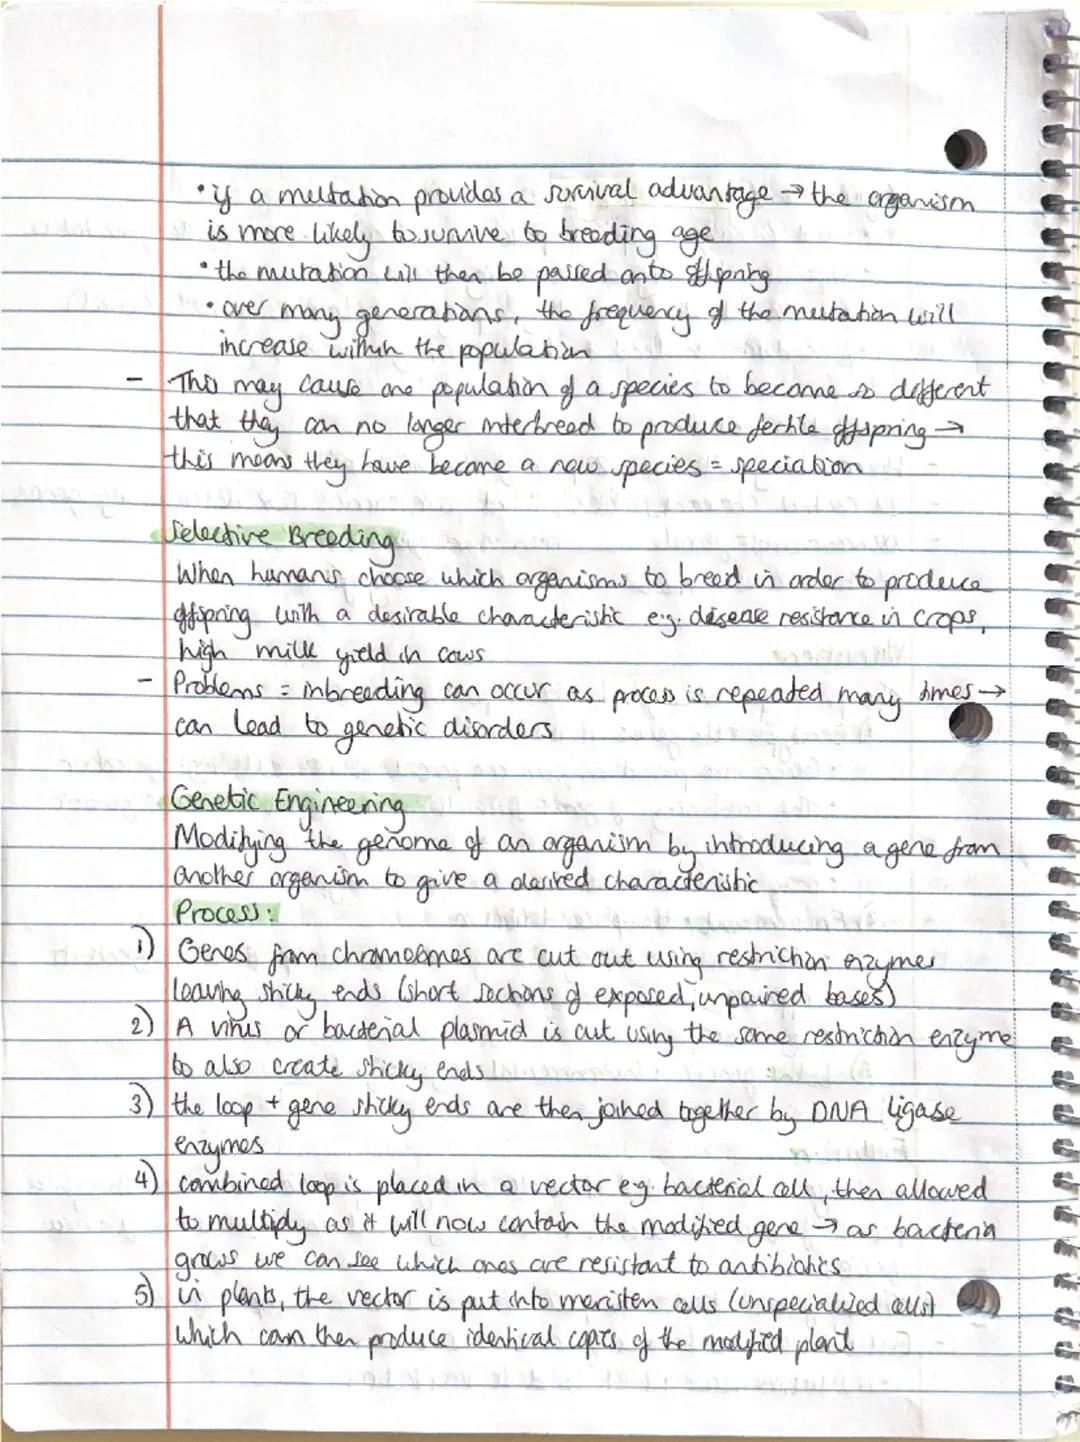 • if a mutation provides a survival advantage → the organism
is more likely to survive to breeding age
• the mutation will then be passed onto offspring
• over many generations, the frequency of the mutation will
increase within the population
- This may cause one population of a species to become so different
that they can no longer interbreed to produce fertile offspring →
this means they have become a new species = speciation
Selective Breeding
When humans choose which organisms to breed in order to produce
offspring with a desirable characteristic e.g. disease resistance in crops,
high milk yield in cows
- Problems = inbreeding can occur as process is repeated many times →
can lead to genetic disorders
Genetic Engineering
Modifying the genome of an organism by introducing a gene from
another organism to give a desired characteristic
Process:
1) Genes from chromosomes are cut out using restriction enzymes
leaving sticky ends (short sections of exposed, unpaired bases)
2) A virus or bacterial plasmid is cut using the same restriction enzyme
to also create sticky ends
3) the loop + gene sticky ends are then joined together by DNA ligase
enzymes
4) combined loop is placed in a vector eg. bacterial cell, then allowed
to multiply as it will now contain the modified gene → as bacteria
grows we can see which ones are resistant to antibiotics
5) in plants, the vector is put into meristem cells (unspecialized cells)
which can then produce identical copies of the modified plant